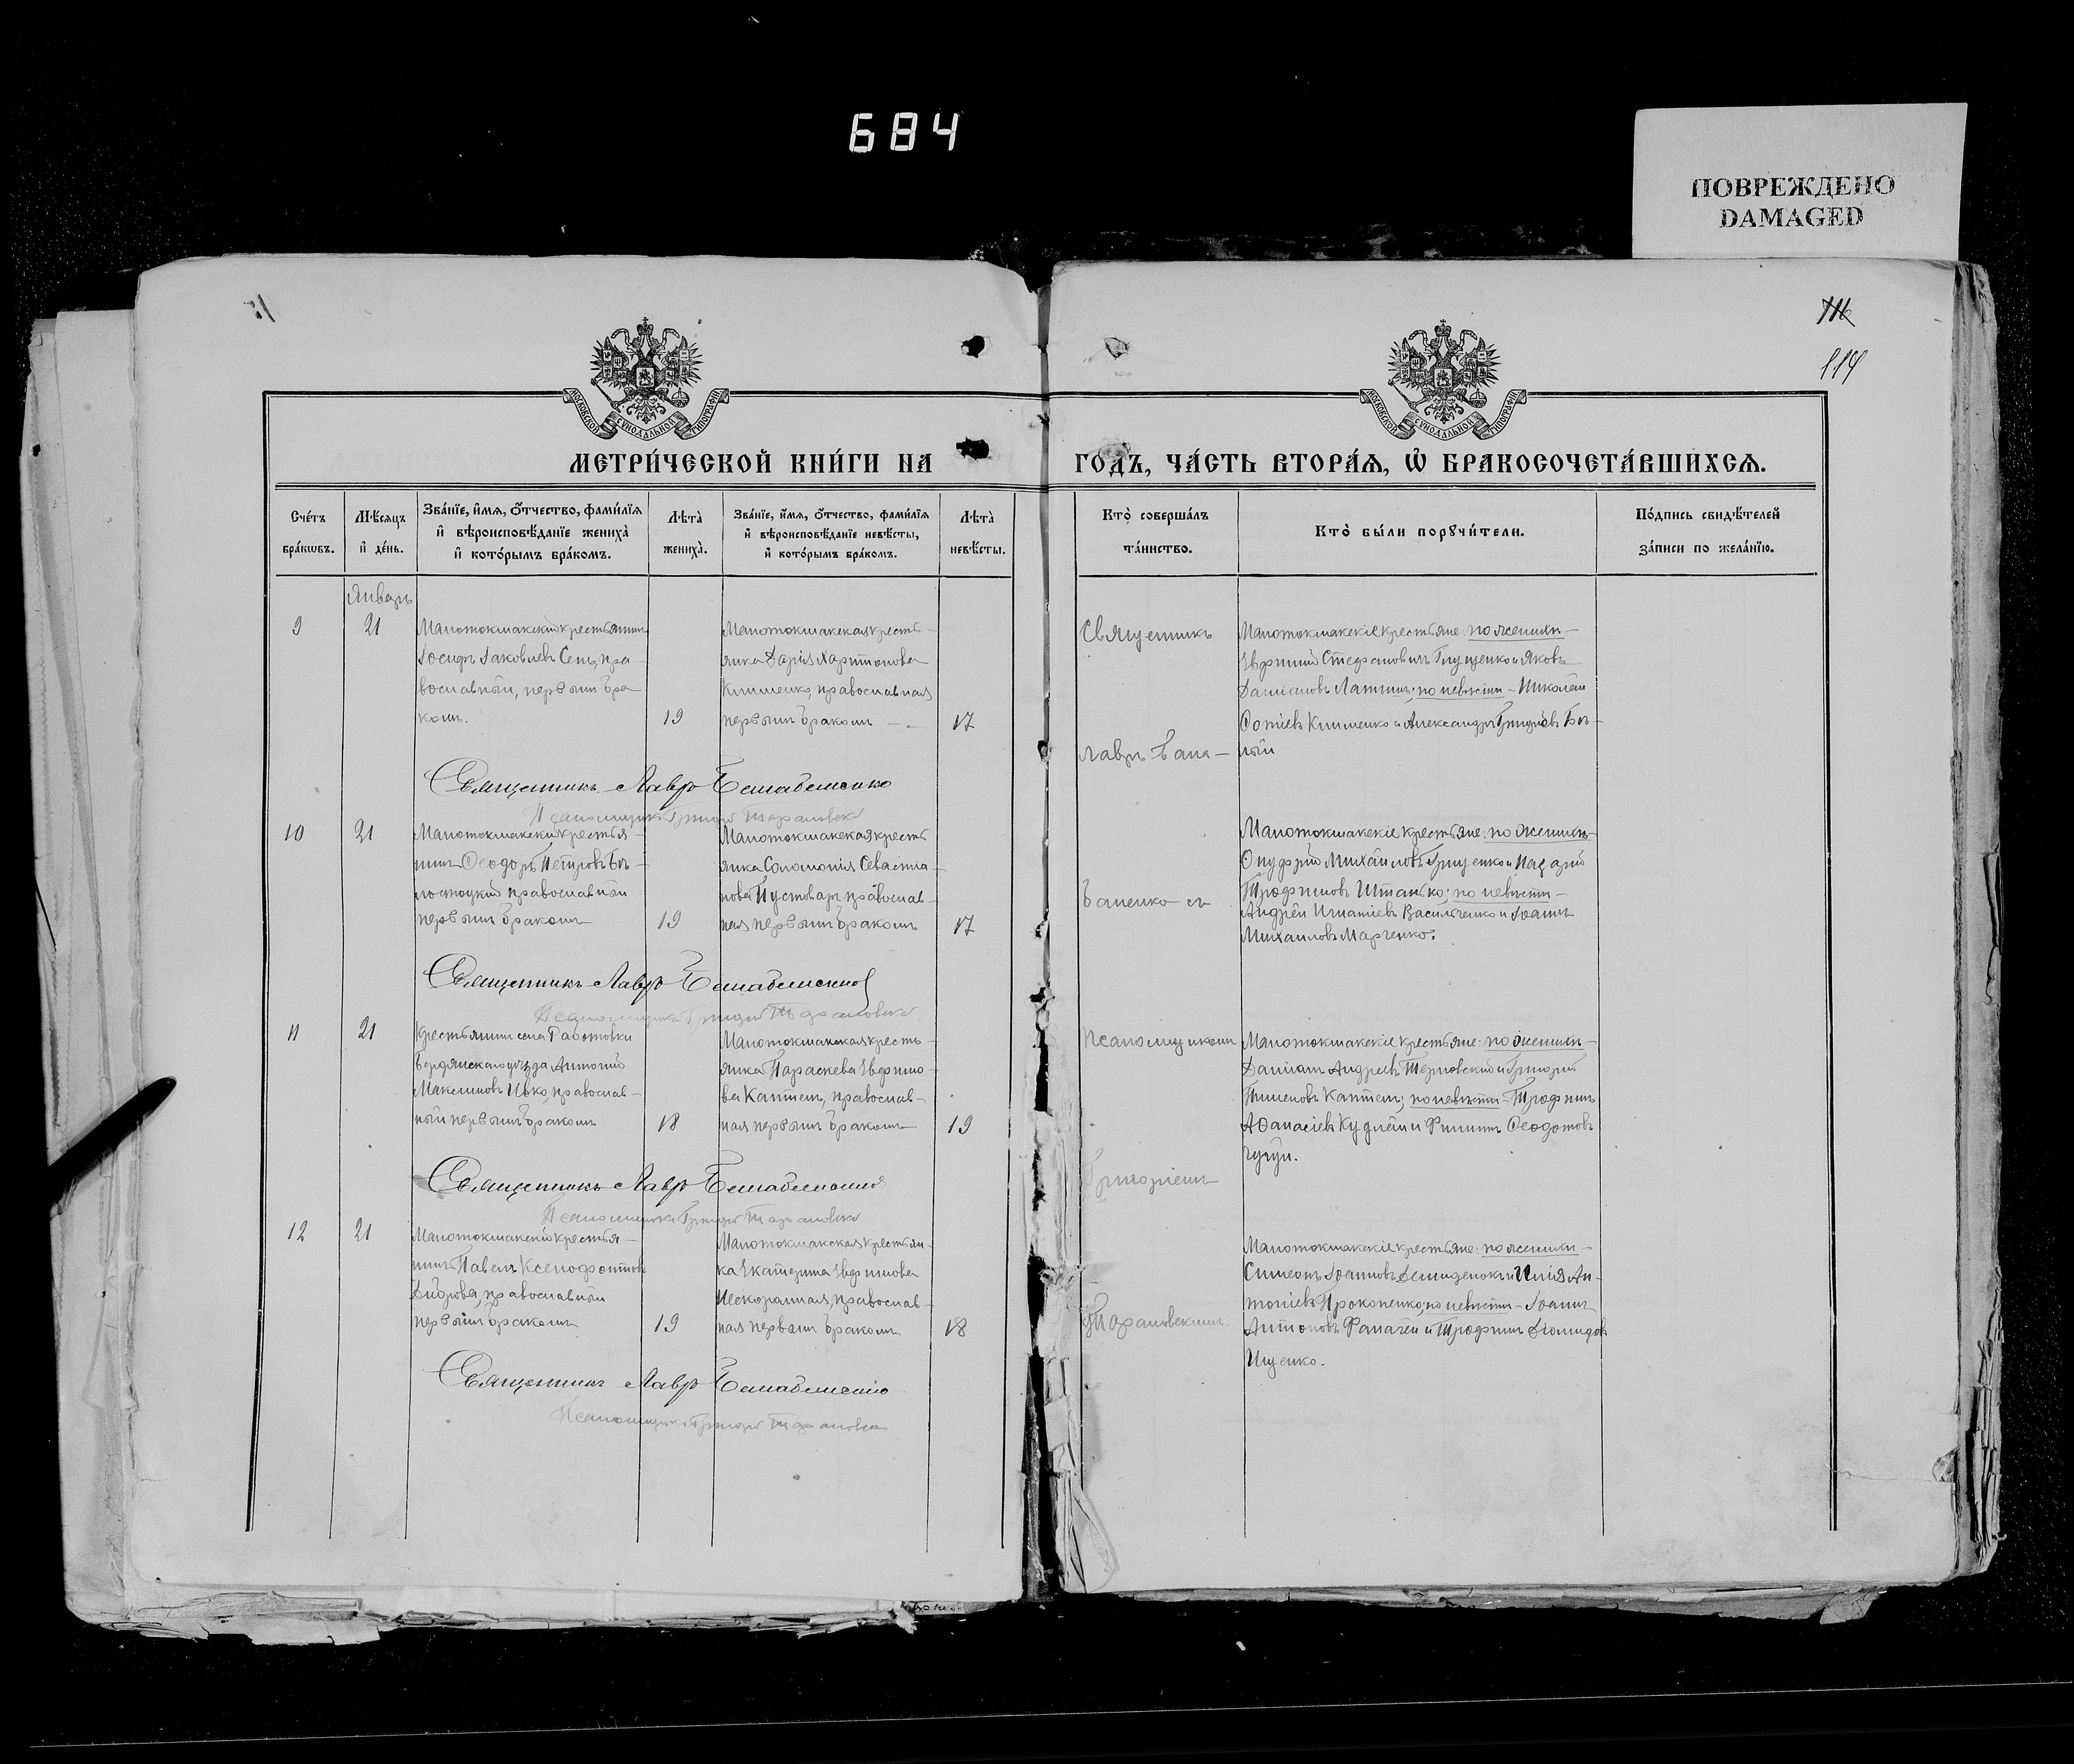 684
ПОВРЕЖДЕНО
DAMAGED
116
114
МОСКОВСКОЙ СѴНОДАЛЬНОЙ ТИПОГРАФІИ
МОСКОВСКОЙ СѴНОДАЛЬНОЙ ТИПОГРАФІИ
МЕТРИ́ЧЕСКОЙ КНИ́ГИ НА ГОДЪ, ЧА́СТЬ ВТОРА́Я, Ѡ҆ БРАКОСОЧЕТА́ВШИХСЯ.
Сче́тъ
бра́кѡвъ.
Мѣ́сяцъ
и҆ де́нь.
Зва́нїе, и҆́мя, ѻ҆́тчество, фами́лїя
и҆ вѣроисповѣ́данїе жениха̀
и҆ кото́рымъ бра́комъ.
Лѣта̀
жениха̀.
Зва́нїе, и҆́мя, ѻ҆́тчество, фами́лїя
и҆ вѣроисповѣ́данїе невѣ́сты,
и҆ кото́рымъ бра́комъ.
Лѣта̀
невѣ́сты.
Кто̀ соверша́лъ
та́инство.
Кто̀ бы́ли порꙋчи́тели.
По́дпись свидѣ́телей
за́писи по жела́нїю.
Январь
9
21
Малотокмакский крестьянинъ
Іосифъ Іаковлевъ Сенъ, пра-
вославный, первымъ бра-
комъ.
19
Малотокмакская кресть-
янка Дарія Харитонова
Клименко, православная
первымъ бракомъ
17
Священникъ
Лавръ Бала-
Малотокмакскіе крестьяне: по женихѣ-
Евфимій Стефановичъ Глущенко и Яковъ
Даміановъ Латышъ; по невѣстѣ - Николай
Сотіевъ Клименко и Александръ Григорьевъ Бѣ-
лый
Священникъ Лавръ
Псаломщикъ Григорій Тарановскій
10
21
Малотокмакский крестья-
нинъ Ѳеодоръ Петровъ Бѣ-
лостоцкий православный
первымъ бракомъ
19
Малотокмакская кресть
янка Соломонія Севастіа-
нова Пустоваръ православ-
ная первымъ бракомъ
17
баненко съ
Малотокмакскіе крестьяне: по женихѣ-
Онуфрій Михайловъ Грищенко и Назарій
Трофимовъ Штанько; по невѣстѣ-
Андрей Игнатіевъ Васильченко и Іоаннъ
Михаиловъ Марченко.
Священникъ Лавръ
Псаломщикъ Григорій Тарановскій
11
21
Крестьянинъ села Работовки
Бердянскаго уѣзда Антоній
Максимовъ Ивко, православ-
ный первымъ бракомъ
18
Малотокмакская кресть-
янка Параскева Евфимо-
ва Каптенъ, православ-
ная первымъ бракомъ
19
псаломщикомъ
Григоріемъ
Малотокмакскіе крестьяне: по женихѣ-
Даміанъ Андреевъ Терновский и Григорій
Тимоновъ Каптенъ; по невѣстѣ - Трофимъ
Аѳанасіевъ Кудлай и Филиппъ Ѳеодотовъ
Чугуи.
Священникъ Лавръ
Псаломщикъ Григорій Тарановскій
12
21
Малотокмакский крестья-
нинъ Павелъ Ксенофонтовъ
православный
первымъ бракомъ
19
Малотокмакская крестьян-
ка Екатерина Евфимова
Нескоромная, православ-
ная первымъ бракомъ
18
Тарановскимъ.
Малотокмакскіе крестьяне: по женихѣ-
Симеонъ Іоанновъ Демиденокъ и Илія Ан-
тоніевъ Прокопенко; по невѣстѣ - Іоаннъ
Антоновъ Палачеи и Трофимъ Діомидовъ
Ищенко.
Священникъ Лавръ
Псаломщикъ Григорій Тарановскій